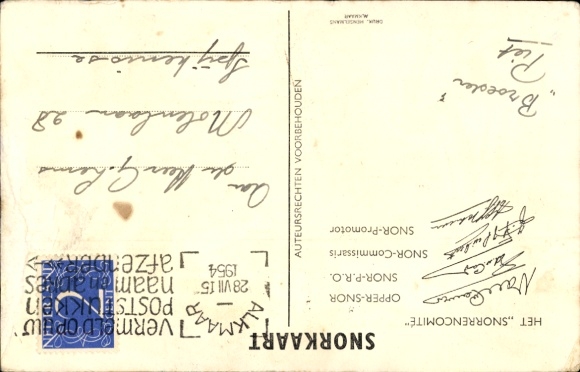 SNORKAART
HET „SNORRENCOMITÉ"
OPPER-SNOR
SNOR-P.R.O.
SNOR-Commissaris
SNOR-Promotor
„Broeder"
Piet
DRUK. HENGELMANS
ALKMAAR
AUTEURSRECHTEN VOORBEHOUDEN
ALKMAAR
28 VII 15
1954
VERMELD OP UW
POSTSTUKKEN
NAAM EN ADRES
AFZENDER
Aan
de Heer G.
Molenlaan 28
Spijkenisse